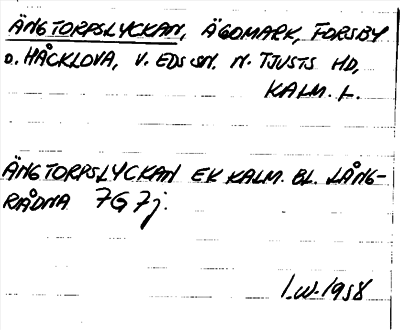 ÄNGTORPSLYCKAN, ÄGOMARK, FORSBY
O. HÅCKLOVA, V. EDS SN. N. TJUSTS HD,
KALM. L.
ÄNGTORPSLYCKAN EK KALM. BL. LÅNG-
RÅDNA 7G7j.
I.W. 1958